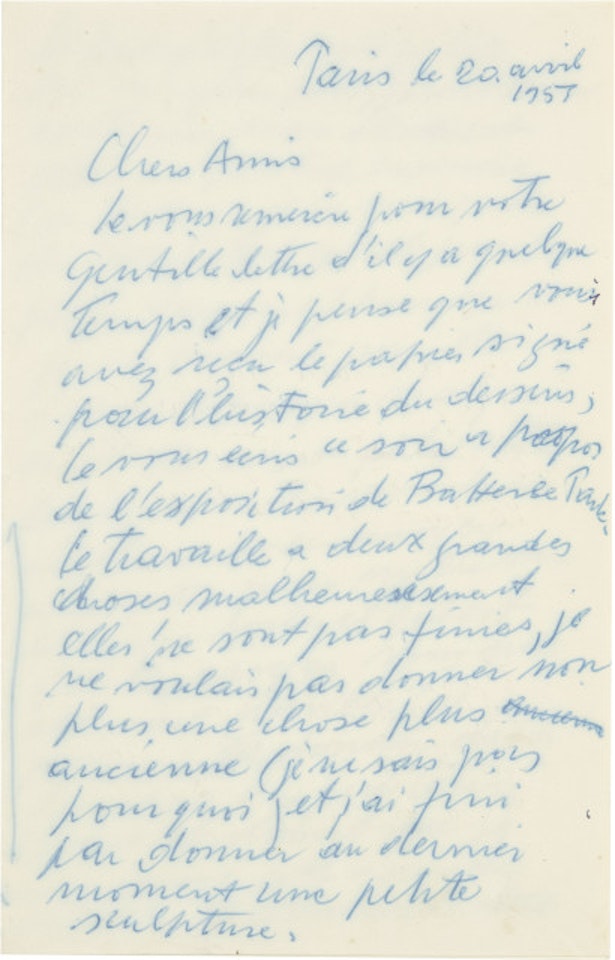 Paris le 20. avril
1951
Chers Amis
Je vous remercie pour votre
gentille lettre d'il y a quelque
temps et je pense que vous
avez reçu le papier signé
pour l'histoire du dessins,
Je vous écris ce soir a propos
de l'exposition de Battersee Park.
Je travaille a deux grandes
choses malheuresesement
elles ne sont pas finies, je
ne voulais pas donner non
plus une chose plus
ancienne (je ne sais pas
pourquoi) et j'ai fini
par donner au dernier
moment une petite
sculpture.